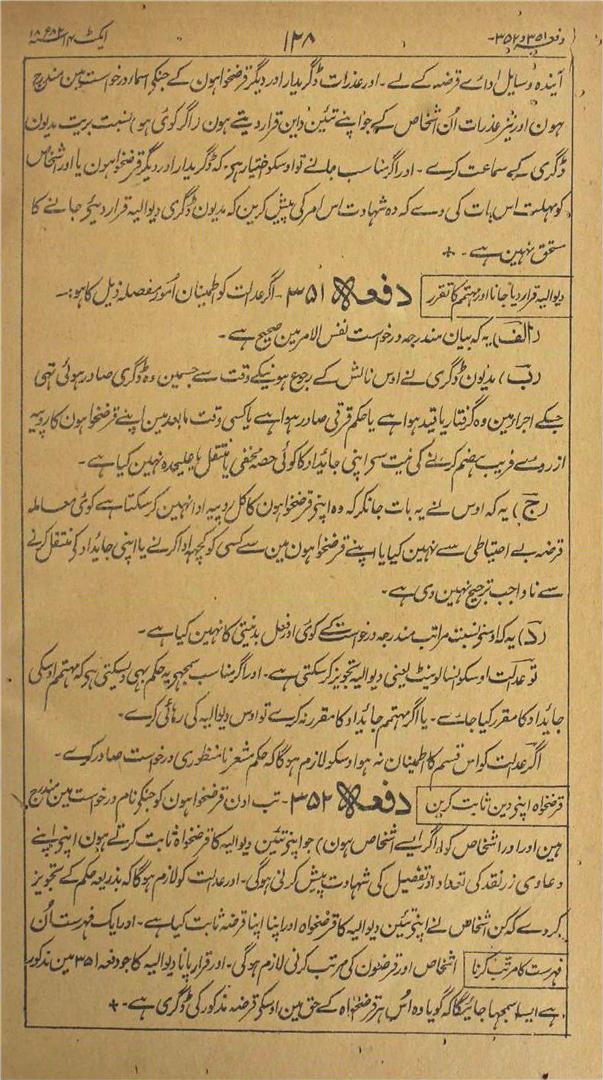 دفعہ ۳۵۱ و ۳۵۲
۱۲۸
ایکٹ ۱۴ سنہ ۱۸۸۲ء
آیندہ وسایل ادائے قرضہ کے لے ۔ اور عذرات ڈگریدار اور دیگر قرضخواہون کے جنکے اسمار درخواست مین مندرج
ہون اور نیز عذرات اُن اشخاص کے جو اپنے تئین داین قرار دیتے ہون (اگر کوئی ہو) بنسبت بریت مدیون
ڈگری کے سماعت کرے ۔ اور اگر مناسب جانے تو اوسکو اختیار ہے کہ ڈگریدار اور دیگر قرضخواہون یا اور اشخاص
کو مہلت اس بات کی دے کہ وہ شہادت اس امر کی پیش کرین کہ مدیون ڈگری دیوالیہ قرار دیئے جانے کا
مستحق نہین ہے ۔ +
دیوالیہ قرار دیا جانا اور مہتمم کا تقرر
دفعہ ۳۵۱ ۔ اگر عدالت کو اطمینان اُمور مفصلہ ذیل کا ہو :۔
(الف) یہ کہ بیان مندرجہ درخواست نفس الامر مین صحیح ہے ۔
(ب) مدیون ڈگری نے اوس نالش کے رجوع ہونیکے وقت سے جسمین وہ ڈگری صادر ہوئی تہی
جسکے اجرا مین وہ گرفتار یا قید ہوا ہے یا حکم قرقی صادر ہوا ہے یا کسی وقت مابعد مین اپنے قرضخواہون کا روپیہ
از روئے فریب ہضم کرنے کی نیت سے اپنی جائیداد کا کوئی حصہ مخفی یا منتقل یا علیحدہ نہین کیا ہے ۔
(ج) یہ کہ اوس نے یہ بات جانکر کہ وہ اپنے قرضخواہون کا کل روپیہ ادا نہین کر سکتا ہے کوئی معاملہ
قرضہ بے احتیاطی سے نہین کیا یا اپنے قرضخواہون مین سے کسی کو کچہہ ادا کرنے یا اپنی جائیداد کی منتقل کرنے
سے ناواجب ترجیح نہین دی ہے ۔
(د) یہ کہ اوسنے نسبت مراتب مندرجہ درخواست کے کوئی اور فعل بدنیتی کا نہین کیا ہے ۔
تو عدالت اوسکو انسالونیٹ یعنی دیوالیہ تجویز کر سکتی ہے ۔ اور اگر مناسب سمجہے یہ حکم بہی دیسکتی ہے کہ مہتمم اوسکی
جائیداد کا مقرر کیا جائے ۔ یا اگر مہتمم جائیداد کا مقرر نہ کرے تو اوس دیوالیہ کی رہائی کرے ۔
اگر عدالت کو اس قسم کا اطمینان نہ ہو اوسکو لازم ہوگا کہ حکم مشعر نامنظوری درخواست صادر کرے ۔
قرضخواہ اپنی دین ثابت کرین
دفعہ ۳۵۲ ۔ تب اون قرضخواہون کو جنکے نام درخواست مین مندرج
ہین اور اور اشخاص کو (اگر ایسے اشخاص ہون) جو اپنے تئین دیوالیہ کا قرضخواہ ثابت کرتے ہون اپنے اپنے
دعاوی زر نقد کی تعداد اور تفصیل کی شہادت پیش کرنی ہوگی ۔ اور عدالت کو لازم ہوگا کہ بذریعہ حکم کے تجویز
کردے کہ کن اشخاص نے اپنے تئین دیوالیہ کا قرضخواہ اور اپنا اپنا قرضہ ثابت کیا ہے ۔ اور ایک فہرست اُن
فہرست کا مرتب کرنا
اشخاص اور قرضون کی مرتب کرنی لازم ہوگی ۔ اور قرار پانا دیوالیہ کا جو دفعہ ۳۵۱ مین مذکور
ہے ایسا سمجہا جائیگا کہ گویا وہ اُس ہر قرضخواہ کے حق مین اوسکو قرضہ مذکور کی ڈگری ہے ۔ +